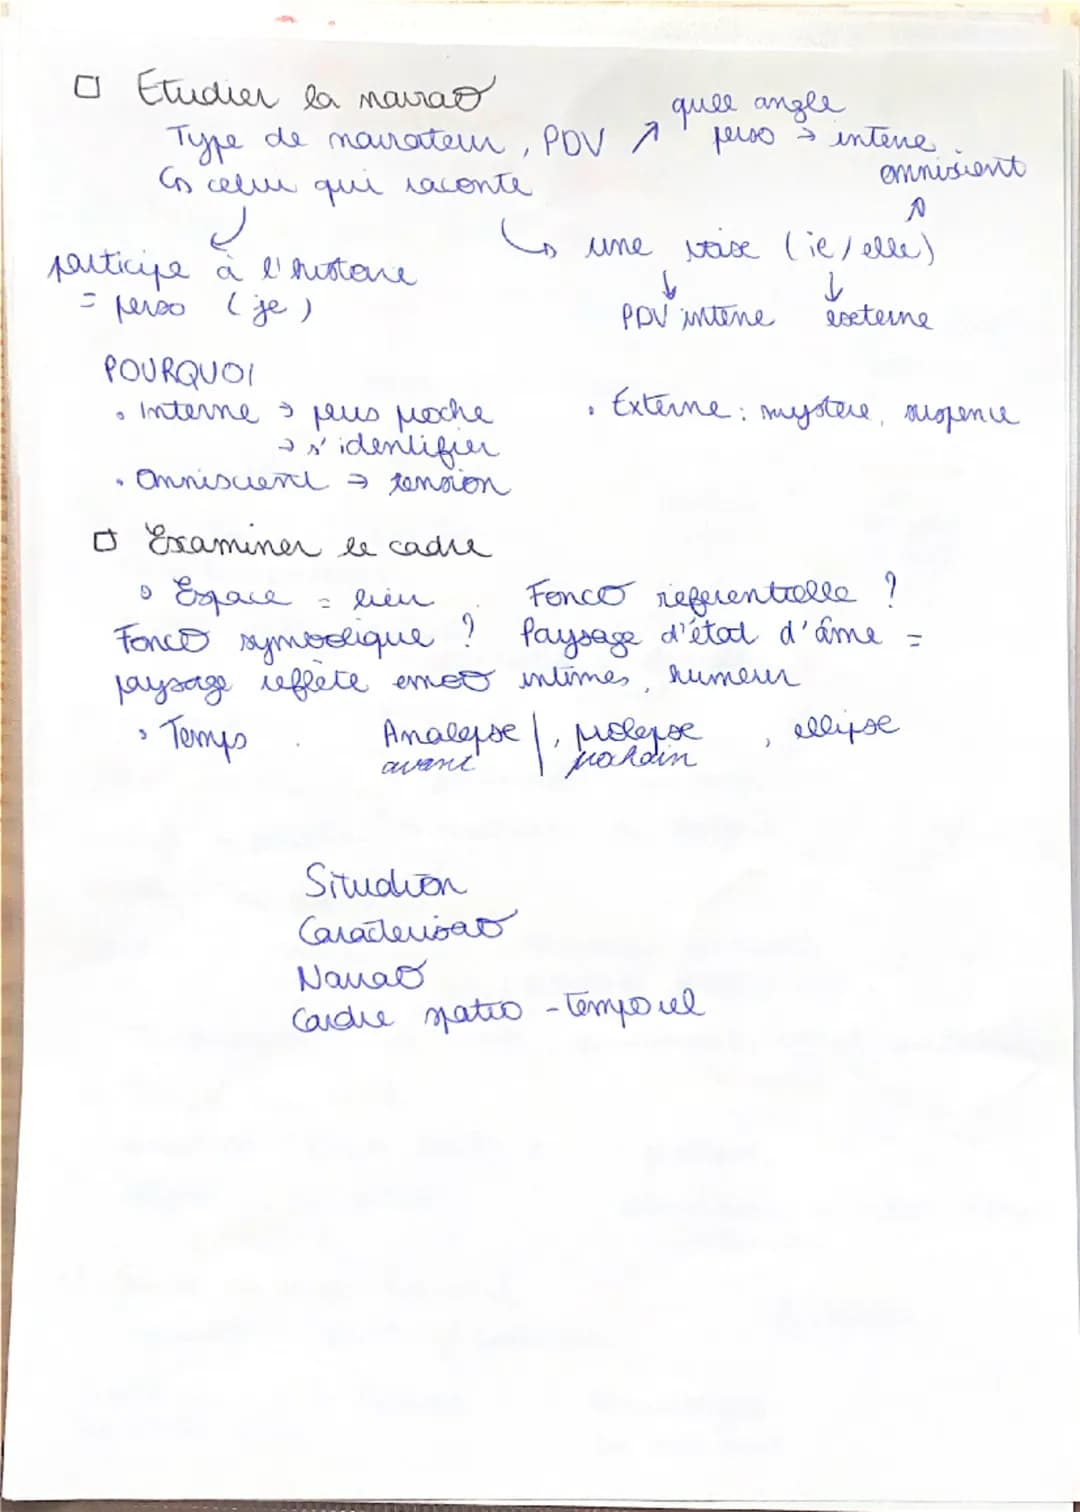 □ Etudier la narrat°
quel angle
Type de narrateur, PDV ↗ perso → interne
↳ celui qui raconte
omniscient
participe à l'histoire
↳ une voix (il/elle)
= perso (je)
PDV interne externe
POURQUOI
• Interne → plus proche
• Externe : mystère, suspence
→ s'identifier
• Omniscient → tension
□ Examiner le cadre
• Espace = lieu Fonct° referentielle ?
Fonct° symbolique ? Paysage d'état d'âme =
paysage reflète emot° intimes, humeur
• Temps Analepse |, prolepse, ellipse
avant | prochain
Situation
Caractérisat°
Narrat°
Cadre spatio-temporel